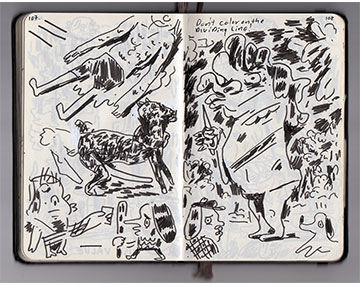 107.
Don't color on the
Dividing Line!
108